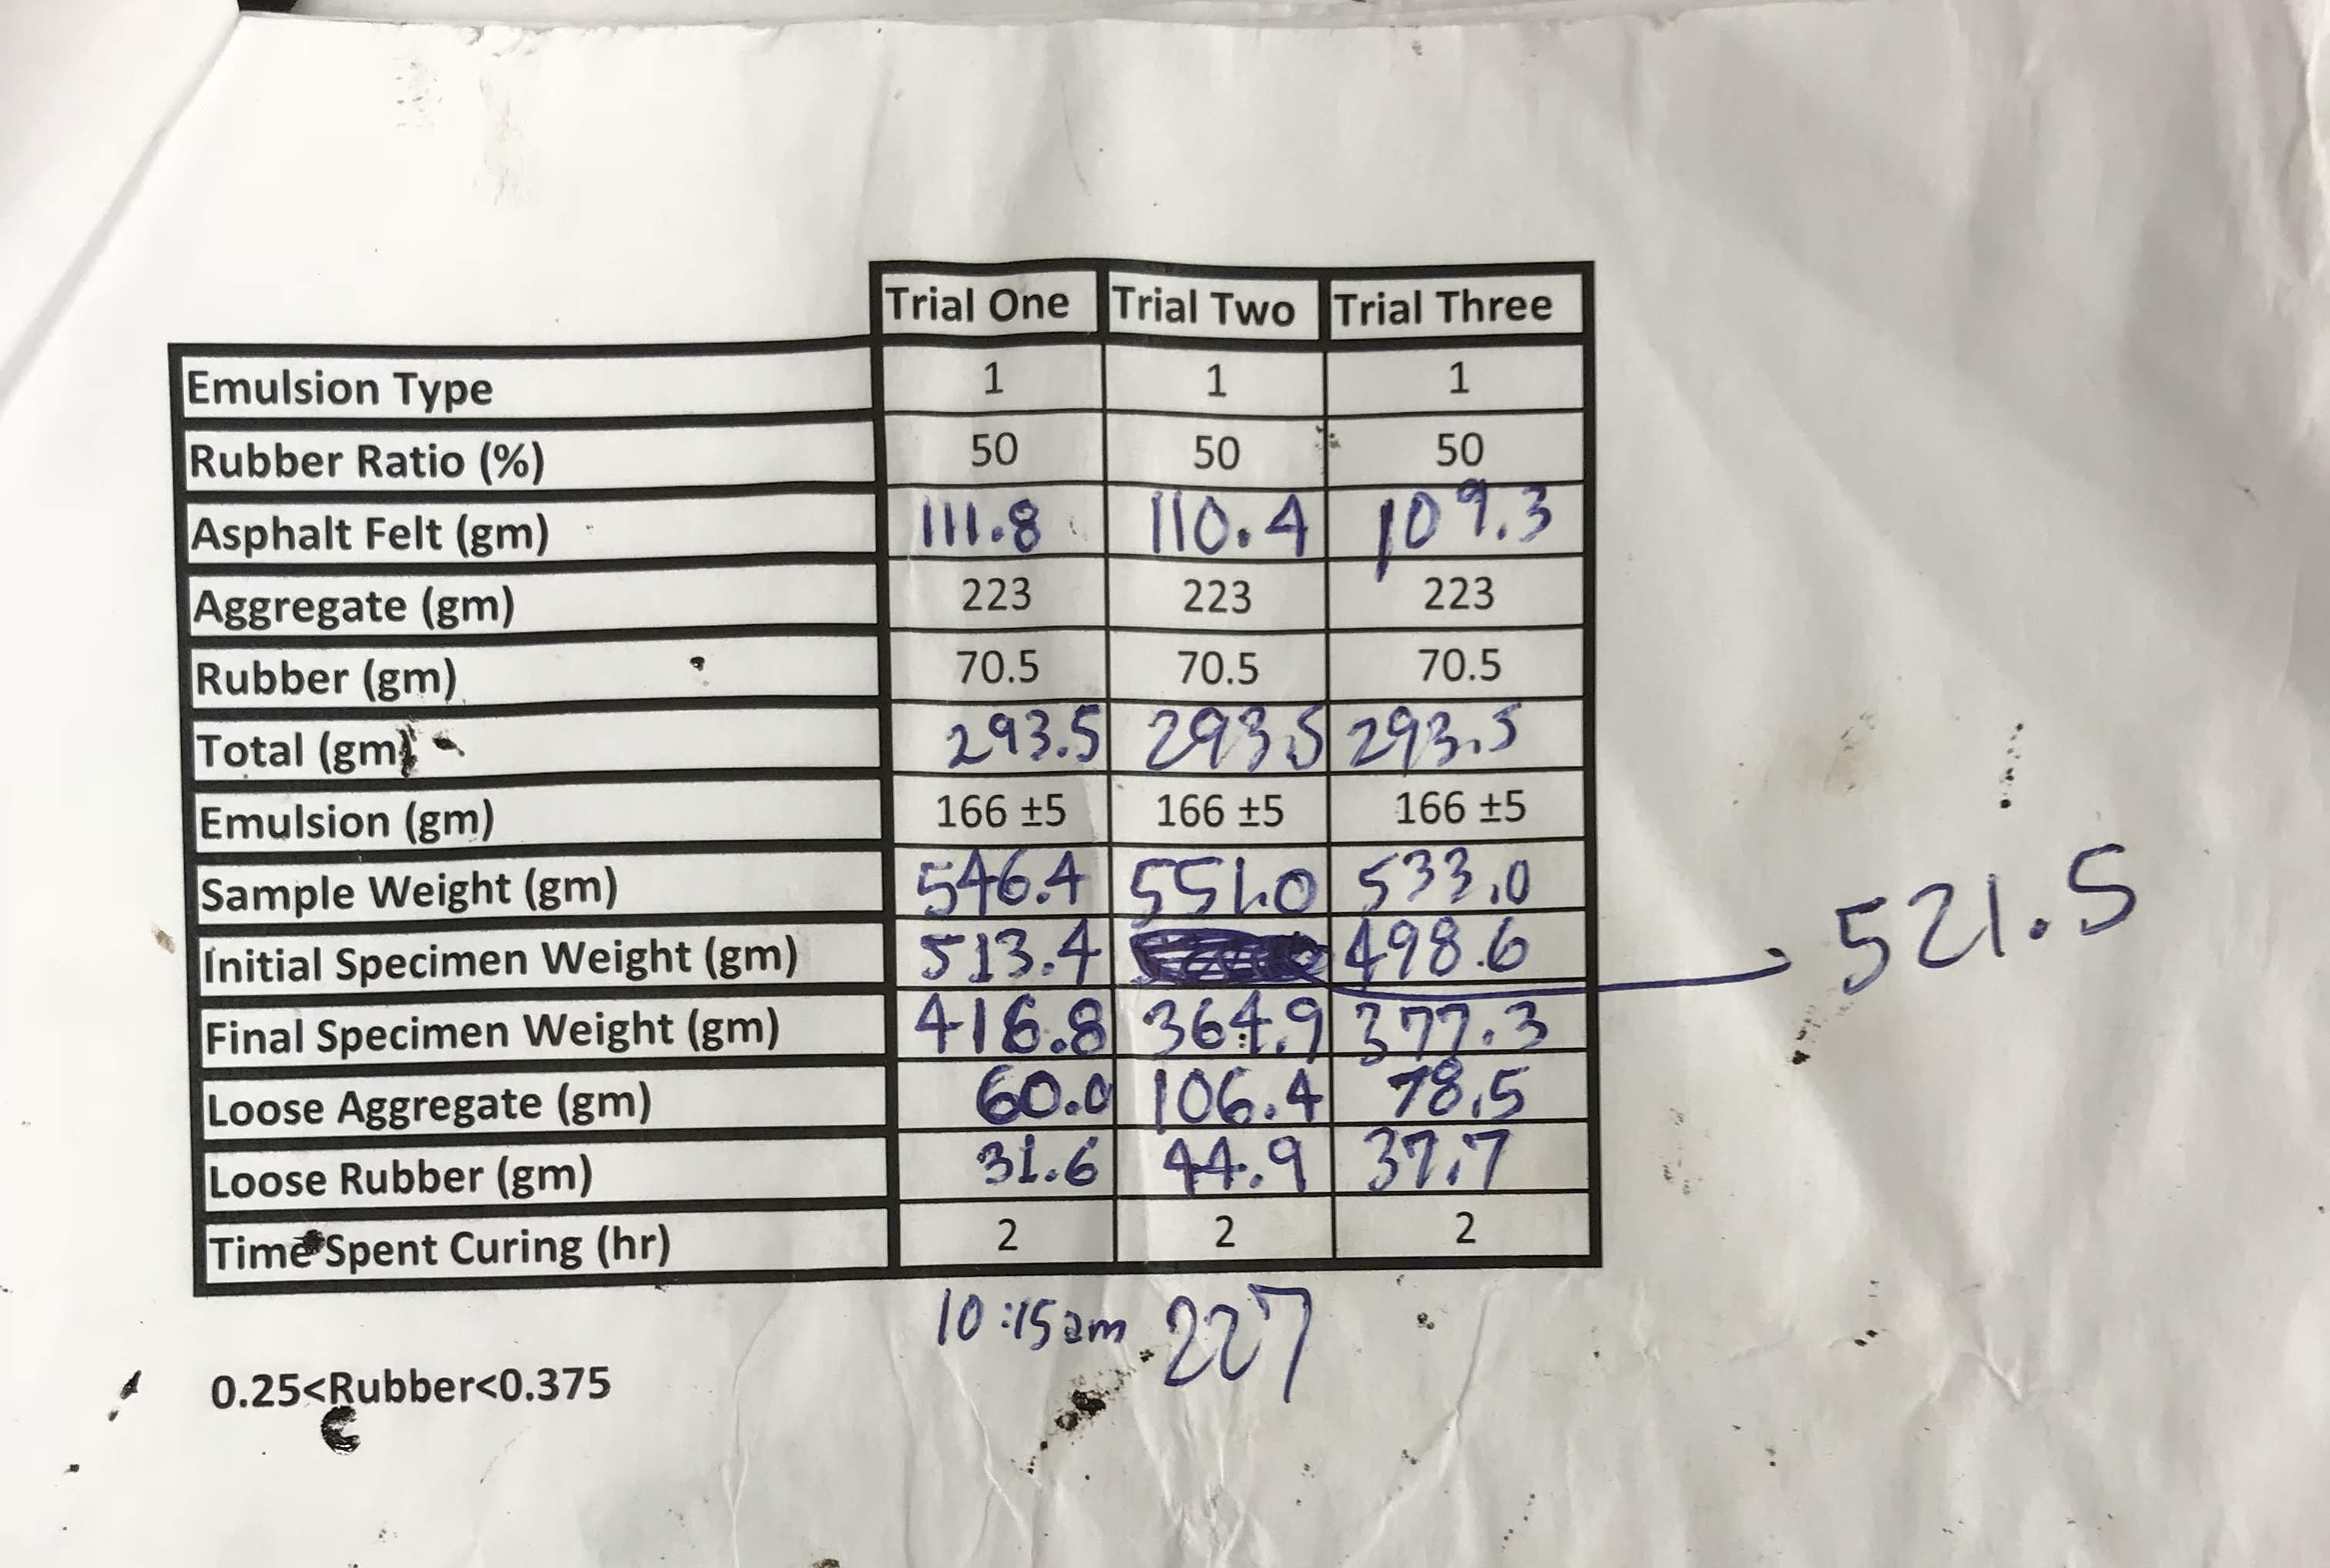 Trial One Trial Two Trial Three
Emulsion Type 1 1 1
Rubber Ratio (%) 50 50 50
Asphalt Felt (gm) 111.8 110.4 109.3
Aggregate (gm) 223 223 223
Rubber (gm) 70.5 70.5 70.5
Total (gm) 293.5 293.5 293.5
Emulsion (gm) 166 ±5 166 ±5 166 ±5
Sample Weight (gm) 546.4 551.0 533.0
Initial Specimen Weight (gm) 513.4 498.6 521.5
Final Specimen Weight (gm) 416.8 364.9 377.3
Loose Aggregate (gm) 60.0 106.4 78.5
Loose Rubber (gm) 31.6 44.9 37.7
Time Spent Curing (hr) 2 2 2
10:15am 227
0.25<Rubber<0.375